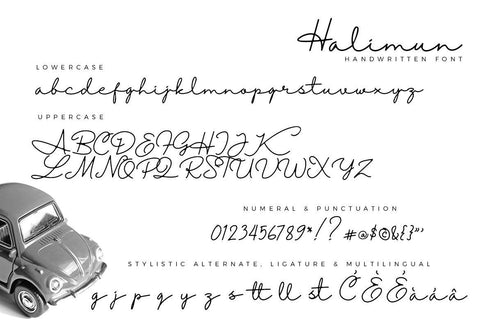 Halimun
HANDWRITTEN FONT
LOWERCASE
abcdefghijklmnopqrstuvwxyz
UPPERCASE
ABCDEFGHIJK
LMNOPQRSTUVWXYZ
NUMERAL & PUNCTUATION
0123456789*!? #@$©&{}"'
STYLISTIC ALTERNATE, LIGATURE & MULTILINGUAL
g j p q y z s tt ll st Ć È É à á â